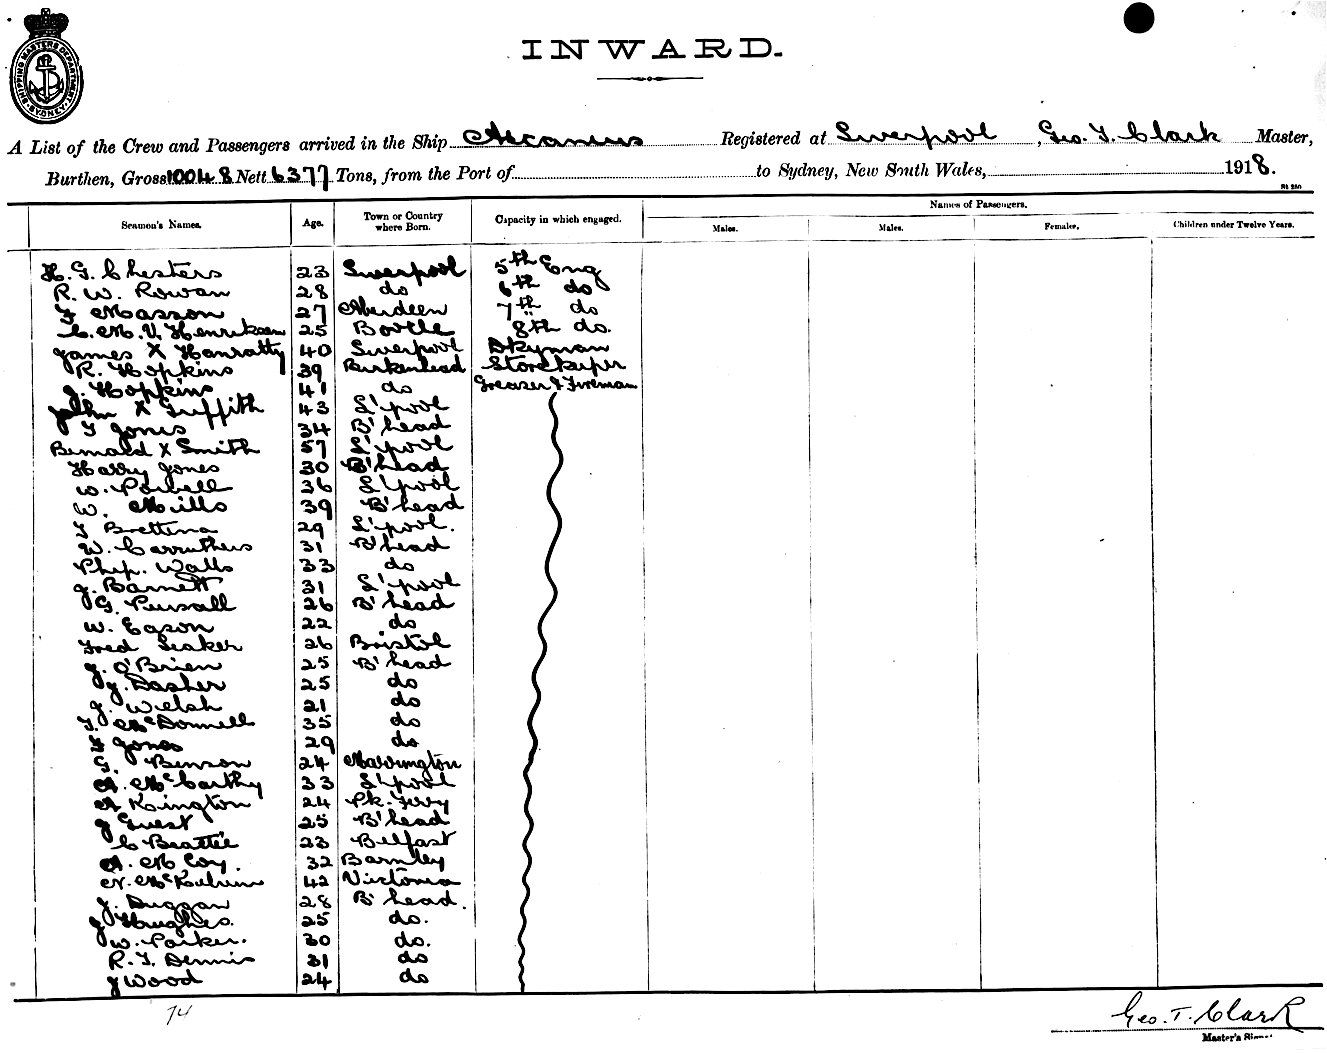 SHIPPING MASTERS DEPARTMENT SYDNEY
INWARD.
A List of the Crew and Passengers arrived in the Ship Ascanius Registered at Liverpool, Geo. T. Clark Master,
Burthen, Gross 10048 Nett 6377 Tons, from the Port of to Sydney, New South Wales, 1918.
Names of Passengers.
Seamen's Names. Age. Town or Country where Born. Capacity in which engaged. Males. Males. Females. Children under Twelve Years.
H. G. Chesters 23 Liverpool 5th Eng
R. W. Rowan 28 do 6th do
F Masson 27 Aberdeen 7th do
C. M. V. Henriksen 25 Bootle 8th do.
James X Hanratty 40 Liverpool Dkyman
R. Hopkins 39 Birkenhead Storekeeper
J. Hopkins 41 do Greaser & Fireman
John X Griffith 43 L'pool
T Jones 34 B'head
Bernard X Smith 57 L'pool
Harry Jones 30 B'head
W. Powell 36 L'pool
W. Mills 39 B'head
29 L'pool.
W. Carruthers 31 B'head
Phip. Walls 33 do
J. Barnett 31 L'pool
G. Pursall 26 B'head
W. Eason 22 do
Fred Seaker 26 Bristol
J. O'Brien 25 B'head
J. Dasher 25 do
J. Welsh 21 do
T. McDonnell 35 do
F Jones 29 do
G. Benson 24
A. McCarthy 33 L'pool
A Kington 24 Rk. Ferry
J Guest 25 B'head
C Beattie 23 Belfast
A. McCoy. 32 Barnsley
42 Victoria
J. Duggan 28 B'head.
J Hughes. 25 do.
W. Parker. 30 do.
R. T. Dennis 31 do
J Wood 24 do
74
Geo. T. Clark
Master's